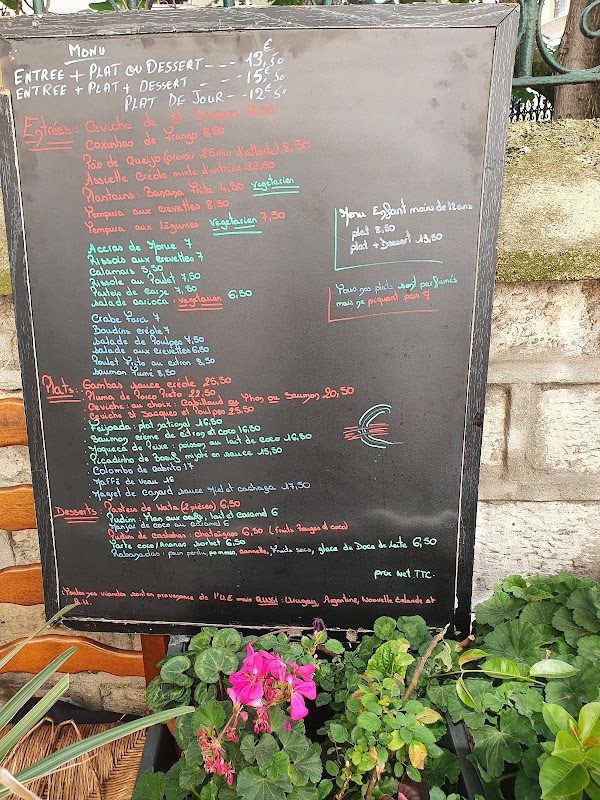 MENU
ENTREE + PLAT OU DESSERT --- 13,50 €
ENTREE + PLAT + DESSERT - --- 15 €50
PLAT DE JOUR -- 12 €50
Entrées : Ceviche de St Jacques 8,50
Coxinhas de Frango 8,50
Pão de Queijo (prevoir 25min d'attente) 8,50
Assiette Créole mixte d'entrées
Plantains : Banana Frita 4,50 vegetarien
Tempura aux crevettes 8,50
Tempura aux légumes vegetarien 7,50
Menu Enfant moins de 12 ans
plat 8,50
plat + Dessert 13,50
Accras de Morue 7
Rissois aux crevettes 7
Calamars 5,50
Rissole au Poulet 7,50
Pasteis de carne 7,50
Salade carioca : vegetarien 6,50
Tous nos plats sont parfumés
mais ne piquent pas !
Crabe Farci 7
Boudins créole 7
Salade de Poulpes 7,50
Salade aux crevettes 6,50
Poulet Frito au citron 8,50
Saumon Fumé 8,50
Plats : Gambas sauce créole 25,50
Pluma de Porco Preto 22,50
Ceviche : au choix : Cabillaud ou Thon ou Saumon 20,50
Ceviche St Jacques et Poulpes 25,50
Feijoada : plat national 16,50
Saumon crème de citron et coco 16,50
Moqueca de Peixe : poisson au lait de coco 16,50
Picadinho de Boeuf mijoté en sauce 15,50
Colombo de Cabrito 17
Maffé de Veau 16
Magret de Canard sauce Miel et cachaça 17,50
€
Desserts : Pasteis de Nata (2 pièces) 6,50
Pudim : Flan aux oeufs, lait et caramel 6
Manjar de coco au Caramel 6
Pudim de Castanhas : chataignes 6,50 (fruits Rouges et coco)
Tarte coco/Ananas sorbet 6,50
Rabanadas : pain perdu, pommes, cannelle, fruits secs, glace de Doce de Leite 6,50
prix Net T.T.C.
Toutes nos viandes sont en provenance de l'U.E mais aussi : Uruguay, Argentine, Nouvelle Zelande et